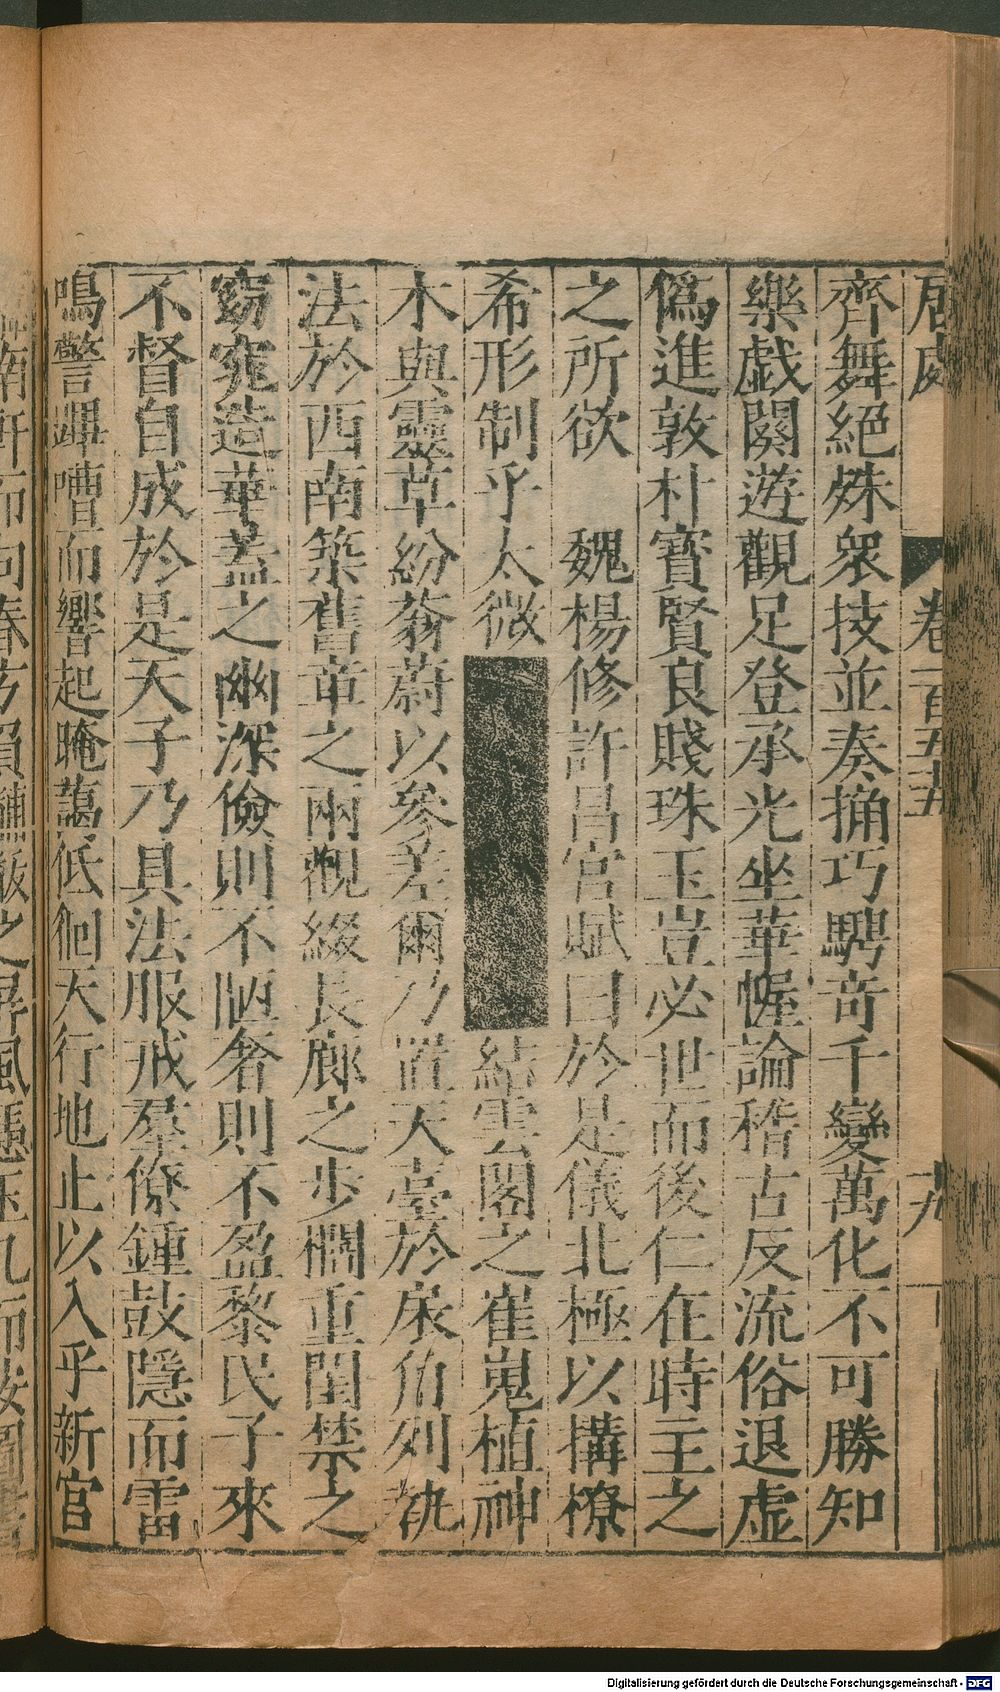 居處
卷一百五五
十九
齊舞絕殊衆技並奏捔巧騁竒千變萬化不可勝知
樂戯闋遊觀足登承光坐華幄論稽古反流俗退虚
僞進敦朴寳賢良賤珠玉豈必世而後仁在時主之
之所欲　魏楊修許昌宫賦曰於是儀北極以搆橑
希形制乎太微
結雲閣之崔嵬植神
木與靈草紛蓊蔚以參差爾乃置天臺於宸角列執
法於西南築舊章之兩觀綴長廊之步櫩重閨禁之
窈窕造華蓋之幽深儉則不陋奢則不盈黎民子來
不督自成於是天子乃具法服戒羣僚鍾鼓隱而雷
鳴警蹕嘈而響起晻藹低佪天行地止以入乎新宫
Digitalisierung gefördert durch die Deutsche Forschungsgemeinschaft - DFG